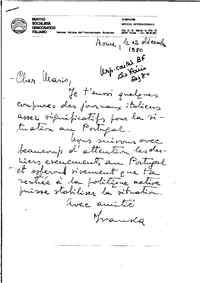 PARTITO
SOCIALISTA
DEMOCRATICO
ITALIANO
Rome, le 12 décembre
1980
Cher Mario,
Je t'envoie quelques
coupures des journaux italiens
assez significatifs pour la si-
tuation au Portugal.
Nous suivons avec
beaucoup d'attention les der-
niers evenements au Portugal
et esperons vivement que ta
rentrée à la politique active
puisse stabiliser la situation.
Avec amitié